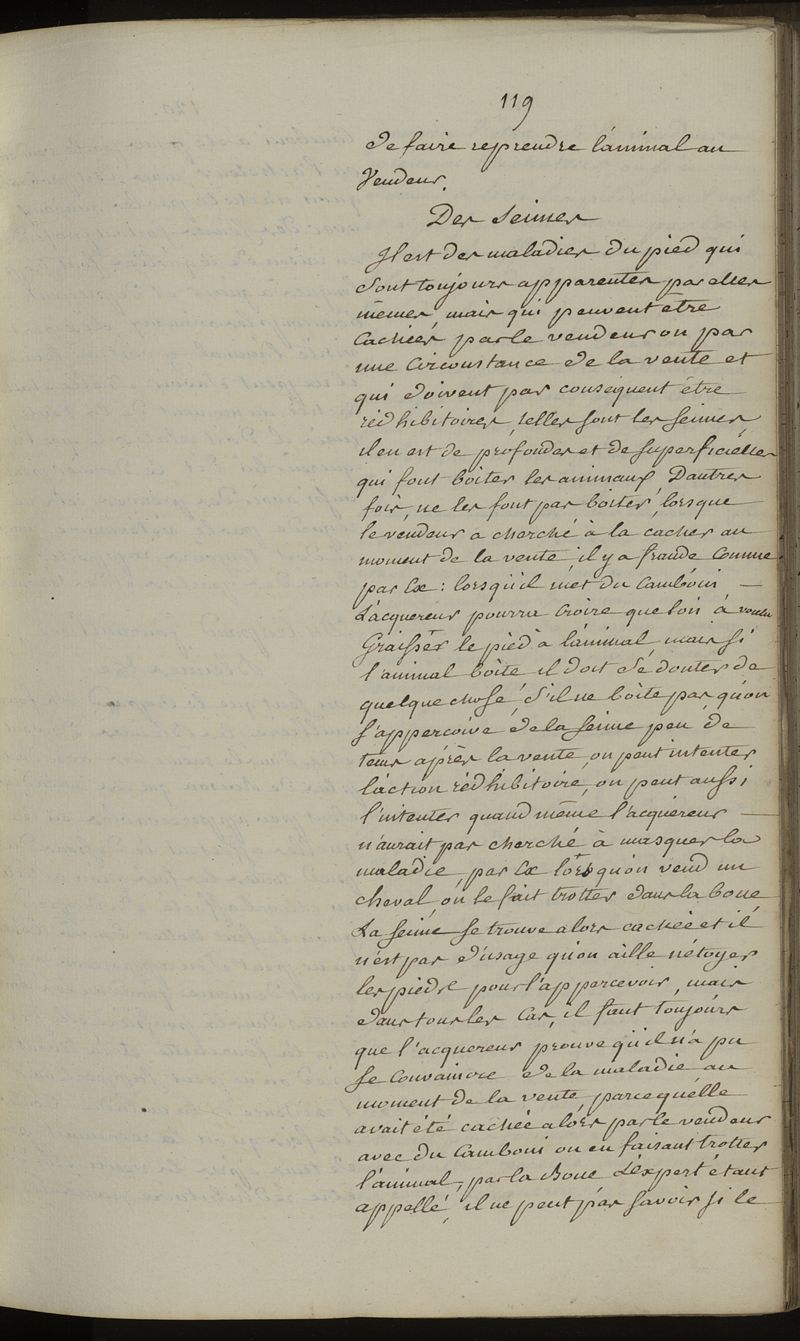 119
de faire reprendre l'animal au
Vendeur.
Des Seimes
Il est des maladies du pied qui
sont toujours apparentes par elles
mêmes, mais qui peuvent être
Cachées par le vendeur ou par
une Circonstance de la vente et
qui doivent par consequent être
rédhibitoires, telles sont les seimes,
il en est de profondes et de superficielles
qui font boiter les animaux, Dautres
fois, ne les font pas boiter, lorsque
le vendeur a cherché à la cacher au
moment de la vente, il y a fraude Comme
par Ex: lorsqu'il met du Camboui —
L'acquereur pourra Croire que l'on à voulu
Graisser le pied à l'animal, mais si
l'animal boite il doit se douter de
quelque chose, s'il ne boite pas qu'on
s'apperçoive de la seime peu de
tems après la vente, on peut intenter
l'action rédhibitoire, on peut aussi
l'intenter quand même l'acquereur —
n'aurait pas cherché à masquer la
maladie, par Ex lorsqu'on vend un
cheval, on le fait trotter dans la boue
La seime se trouve alors cachée et il
n'est pas d'usage qu'on aille nétoyer
les pieds pour l'appercevoir, mais
dans tous les Cas, il faut toujours
que l'acquereur prouve qu'il n'a pu
se Convaincre de la maladie au
moment de la vente, parcequ'elle
avait été cachée alors par le vendeur
avec du Camboui ou en faisant trotter
l'animal, par la Boue L'expert étant
appellé, il ne peut pas savoir si le